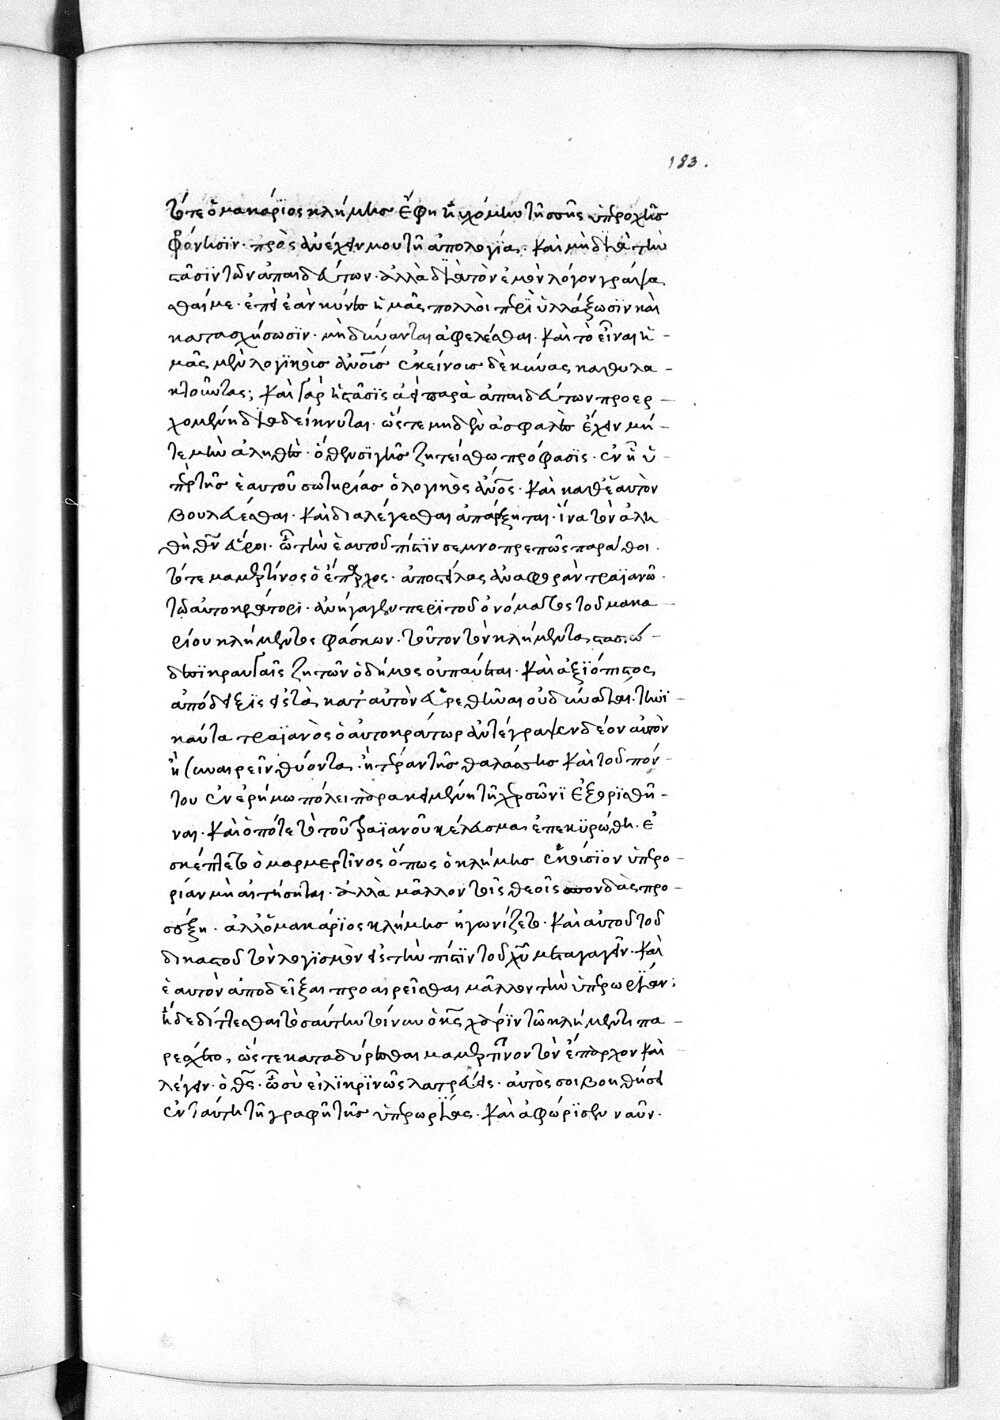 183.
τότε ὁ μακάριος κλήμης ἔφη· ηὐχόμην τῆς σῆς ὑπεροχῆς
φρόνησιν· πρὸς ἀνέχειν μου τῇ ἀπολογία· καὶ μὴ διὰ τὴν
στάσιν τῶν ἀπαιδεύτων· ἀλλὰ διὰ τὸν ἐμὸν λόγον γράψα
σθαί με· ἐπεὶ ἐὰν κύνες ἡμᾶς πολλοὶ περιυλλάξωσιν καὶ
κατασχήσωσιν· μὴ δύνανται ἀφελέσθαι· καὶ τὸ εἶναι ἡ-
μᾶς μὲν λογικοὺς ἀνους ἐκείνους δὲ κύνας καθυλα-
κτοῦντας; καὶ γὰρ ἡ στάσις ἀεὶ παρὰ ἀπαιδεύτων προερ-
χομένη διαδείκνυται· ὥστε μηδὲν ἀσφαλὲς ἔχειν μή-
τε μὴν ἀληθές· ὅθεν σιγῆς ζητείσθω πρόφασις· ἐν ᾗ ὑ-
πὲρ τῆς ἑαυτοῦ σωτηρίας ὁ λογικὸς ἀνος· καὶ καθ' ἑαυτὸν
βουλεύεσθαι· καὶ διαλέγεσθαι ἀπάρξηται· ἵνα τὸν ἀλη
θῆ θν εὕροι· ᾧ τὴν ἑαυτοῦ πίστιν σεμνοπρεπῶς παράθοι·
τότε μαμερτίνος ὁ ἔπαρχος· ἀποστείλας ἀναφορὰν τραϊανῶ·
τῶ αὐτοκράτορι· ἀνήγαγεν περὶ τοῦ ὀνόματος τοῦ μακα-
ρίου κλήμεντος φάσκων· τοῦτον τὸν κλήμεντα στασιώ-
δεσι κραυγαῖς ζητῶν ὁ δῆμος οὐ παύεται· καὶ ἀξιόπιστος
ἀπόδειξις εἰς τὰ κατ' αὐτὸν εὑρεθῆναι οὐ δύναται· τηνι-
καῦτα τραϊανὸς ὁ αὐτοκράτωρ ἀντέγραψεν δέον αὐτὸν
ἢ συναιρεῖν θύοντα· ἢ πέραν τῆς θαλάσσης καὶ τοῦ πόν-
του ἐν ἐρήμω πόλει παρακειμένη τῇ χερσῶνι ἐξορισθῆ-
ναι· καὶ ὁπότε τὸ τοῦ τραϊανοῦ κέλευσμα ἐπεκυρώθη· ἐ
σκέπτετο ὁ μαμερτῖνος ὅπως ὁ κλήμης ἑκούσιον ὑπερο-
ρίαν μὴ αἰτήσηται· ἀλλὰ μᾶλλον τοῖς θεοῖς σπονδὰς προ-
σάξη· ἀλλ' ὁ μακάριος κλήμης ἠγωνίζετο· καὶ αὐτοῦ τοῦ
δικαστοῦ τὸν λογισμὸν εἰς τὴν πίστιν τοῦ χυ μεταγαγεῖν· καὶ
ἑαυτὸν ἀποδεῖξαι προαιρεῖσθαι μᾶλλον τὴν ὑπερωρίαν;
ἢ δεδίττεσθαι τοσαύτην τοίνυν ὁ κς χάριν τῶ κλήμεντι πα-
ρέσχετο, ὥστε καταδύρεσθαι μαμερτῖνον τὸν ἔπαρχον καὶ
λέγειν· ὁ θς· ᾧ σὺ εἰλικρινῶς λατρεύεις· αὐτός σοι βοηθήσει
ἐν ταύτη τῇ γραφῇ τῆς ὑπερωρίας· καὶ ἀφώρισεν ναῦν·